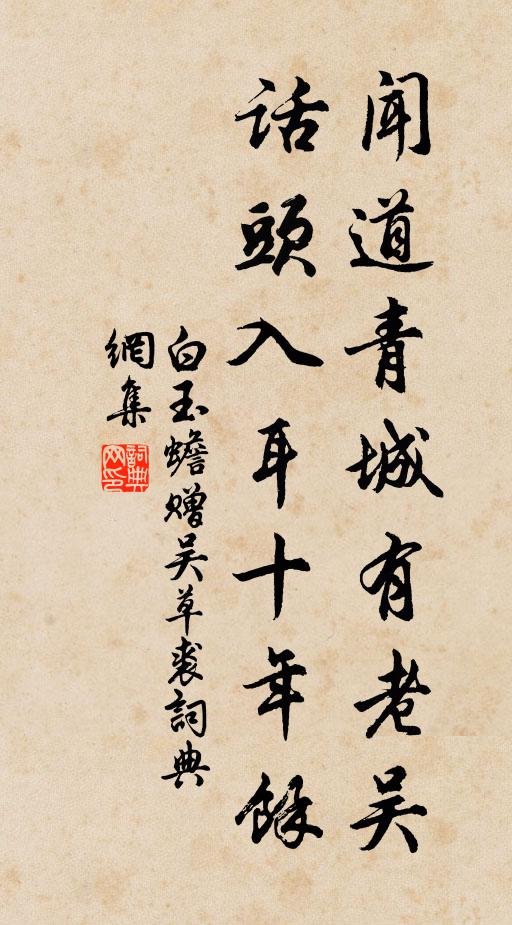 闻道青城有老吴
话頭入耳十年餘
白玉蟾赠吴草裘詞典
網集
詞典
网印